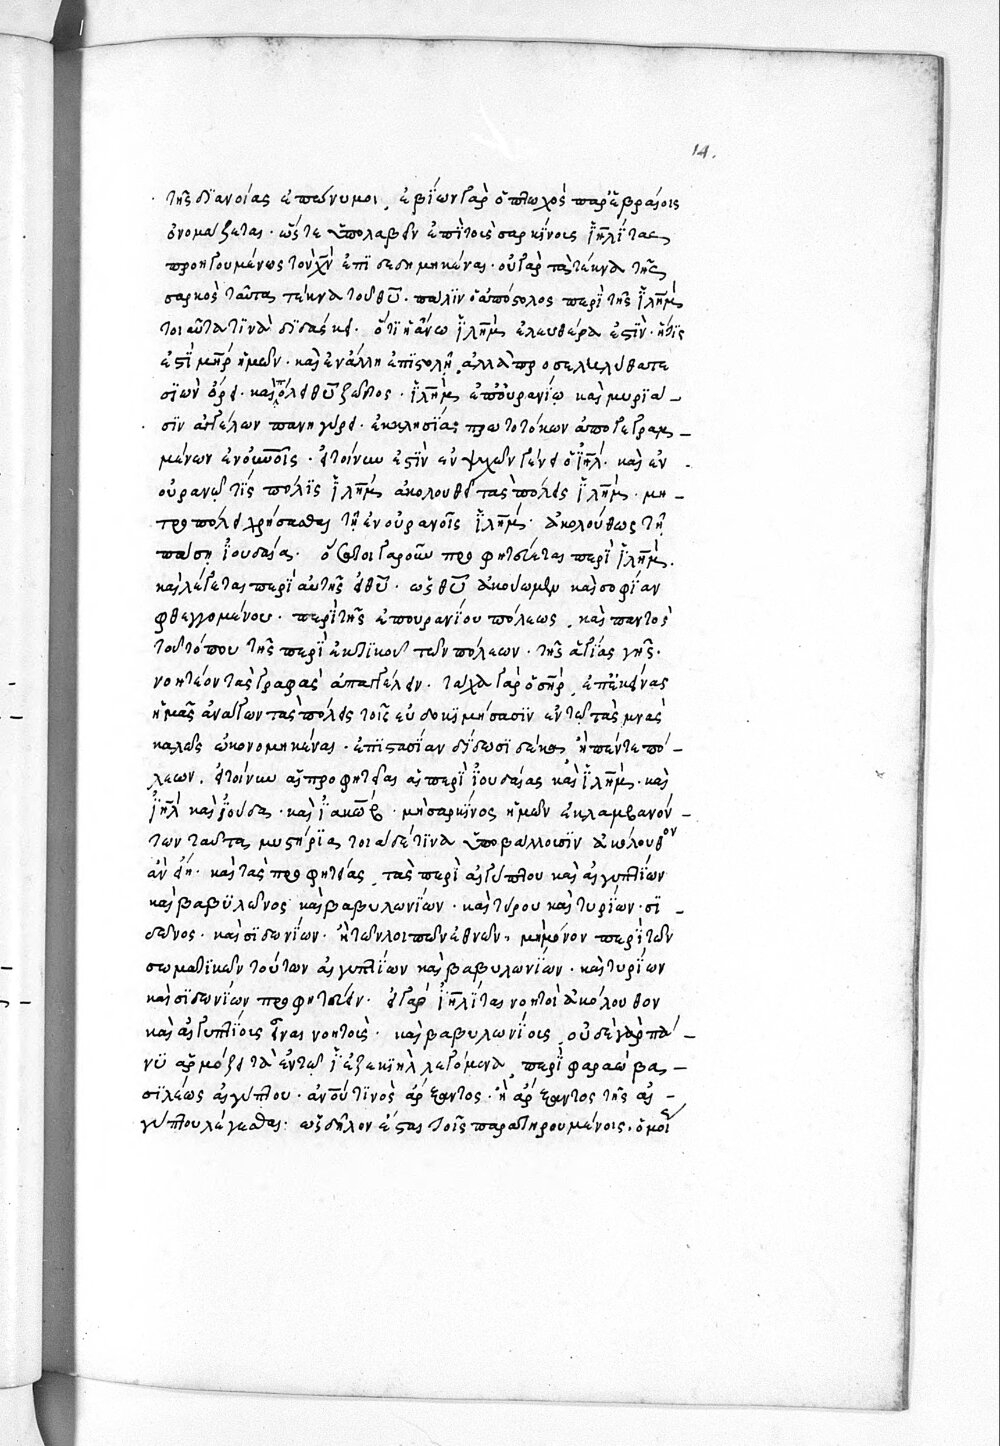 14.
τῆς διανοίας ἐπώνυμοι, ἐβΐων γὰρ ὁ πτωχὸς παρ' ἑβραίοις
ὀνομάζεται· ὥστε ὑπολαβεῖν ἐπὶ τοῖς σαρκίνοις ἰηλίτας
προηγουμένως τὸν χν ἐπιδεδημηκέναι· οὐ γὰρ τὰ τέκνα τῆς
σαρκὸς ταῦτα τέκνα τοῦ θυ· πάλιν ὁ ἀπόστολος περὶ τῆς ἰλημ
τοιαῦτα τινὰ διδάσκει· ὅτι ἡ ἄνω ἰλημ ἐλευθέρα ἐστὶν· ἥτις
ἐστὶ μηρ ἡμῶν· καὶ ἐν ἄλλη ἐπιστολῆ, ἀλλὰ προσεληλύθατε
σιὼν ὄρει· καὶ πόλει θυ ζῶντος· ἰλημ ἐπουρανίω καὶ μυριά–
σιν ἀγγέλων πανηγύρει· ἐκκλησίας πρωτοτόκων ἀπογεγραμ–
μένων ἐν οὐνοῖς· εἰ τοίνυν ἐστὶν ἐν ψυχῶν γένει ὁ ἰηλ· καὶ ἐν
οὐρανῶ τις πόλις ἰλημ ἀκολουθεῖ τὰς πόλεις ἰλημ· μη–
τροπόλει χρήσασθαι τῆ ἐν οὐρανοῖς ἰλημ· ἀκολούθως τῆ
πάση ἰουδαία· ὅσα τοι γαροῦν προφητεύεται περὶ ἰλημ.
καὶ λέγεται περὶ αὐτῆς εἰ θυ· ὡς θυ ἀκούωμεν καὶ σοφίαν
φθεγγομένου· περὶ τῆς ἐπουρανίου πόλεως, καὶ παντὸς
τοῦ τόπου τῆς περιεκτικοῦ τῶν πόλεων· τῆς ἁγίας γῆς·
νοητέον τὰς γραφὰς ἀπαγγέλειν· τάχα γὰρ ὁ σηρ, ἐπέκεινας
ἡμᾶς ἀνάγων τὰς πόλεις τοῖς εὐδοκιμήσασιν ἐν τῶ τὰς μνᾶς
καλῶς ὠκονομηκέναι· ἐπιστασίαν δίδωσι δέκα, ἢ πέντε πό–
λεων. εἰ τοίνυν αἱ προφητεῖαι αἱ περὶ ἰουδαίας καὶ ἰλημ· καὶ
ἰηλ καὶ ἰούδα· καὶ ἰακώβ· μὴ σαρκίνος ἡμῶν ἐκλαμβανόν–
των ταῦτα, μυστήρια τοιάδε τινὰ ὑποβάλλουσιν ἀκόλουθον
ἂν εἴη· καὶ τὰς προφητείας, τὰς περὶ αἰγύπτου καὶ αἰγυπτίων
καὶ βαβυλῶνος καὶ βαβυλωνίων· καὶ τύρου καὶ τυρίων· σι–
δῶνος· καὶ σιδωνίων· ἢ τῶν λοιπῶν ἐθνῶν, μὴ μόνον περὶ τῶν
σωματικῶν τούτων αἰγυπτίων καὶ βαβυλωνίων· καὶ τυρίων
καὶ σιδωνίων προφητεύειν· εἰ γὰρ ἰηλίται νοητοὶ ἀκόλουθον
καὶ αἰγυπτίοις εἶναι νοητοῖς· καὶ βαβυλωνίοις, οὐδὲ γὰρ πά–
νυ ἁρμόζει τὰ ἐν τῶ ἰεζεκιὴλ λεγόμενα, περὶ φαραὼ βα–
σιλέως αἰγύπτου· ἀνου τινὸς ἄρξαντος· ἢ ἄρξαντος τῆς αἰ–
γύπτου λέγεσθαι· ὡς δῆλον ἔσται τοῖς παρατηρουμένοις. ὁμοί